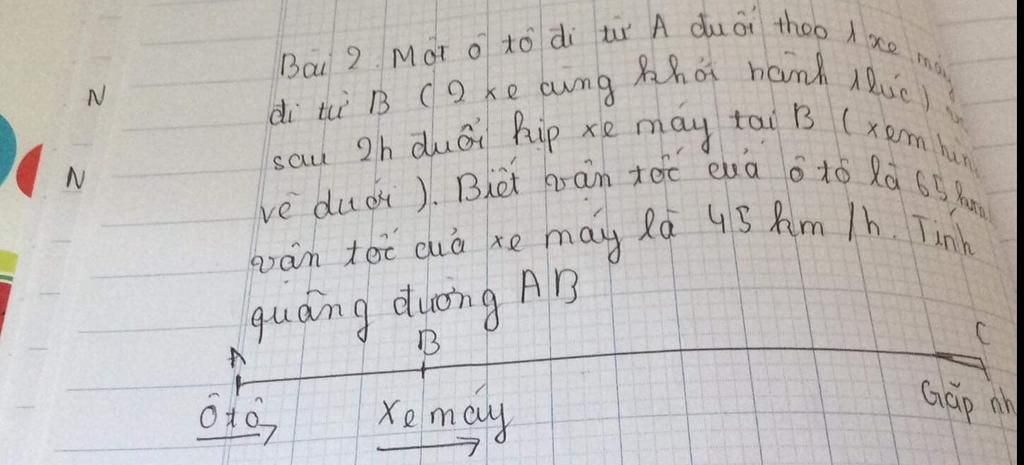 Bài 2. Một ô tô đi từ A đuổi theo 1 xe máy
đi từ B (2 xe cùng khởi hành 1 lúc)
sau 2h đuổi kịp xe máy tại B (xem hình
vẽ dưới). Biết vân tốc của ô tô là 65 km
vân tốc của xe máy là 45 km/h. Tính
quãng đường AB
A B C
Ô tô Xe máy Gặp nh
N
N